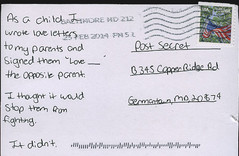 As a child, I
wrote love letters
to my parents and
signed them "Love __
the opposite parent.
I thought it would
stop them from
fighting.
It didn't.
BALTIMORE MD 212
25 FEB 2014 PM 5 L
Post Secret
13345 Copper Ridge Rd
Germantown, MD 20874